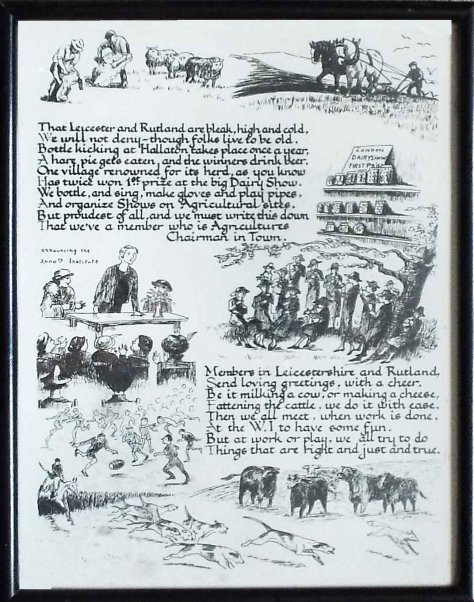 That Leicester and Rutland are bleak, high and cold,
We will not deny - though folks live to be old.
Bottle kicking at Hallaton takes place once a year,
A hare pie gets eaten, and the winners drink beer.
One village renowned for its herd, as you know
Has twice won 1st prize at the big Dairy Show.
We bottle, and sing, make gloves and play pipes,
And organize Shows on Agricultural sites.
But proudest of all, and we must write this down
That we've a member who is Agricultures
Chairman in Town.
LONDON
DAIRY SHOW
FIRST PRIZE
announcing the
5000th Institute
Members in Leicestershire and Rutland,
Send loving greetings, with a cheer.
Be it milking a cow, or making a cheese,
Fattening the cattle, we do it with ease.
Then we all meet, when work is done,
At the W.I to have some fun.
But at work or play, we all try to do
Things that are right and just and true.